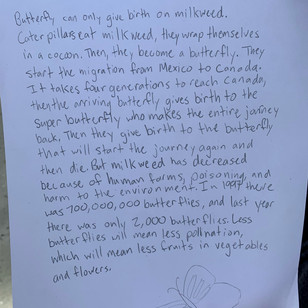 Butterfly can only give birth on milkweed.
Caterpillars eat milkweed, they wrap themselves
in a cocoon. Then, they become a butterfly. They
start the migration from Mexico to Canada.
It takes four generations to reach Canada,
then the arriving butterfly gives birth to the
super butterfly who makes the entire journey
back. Then they give birth to the butterfly
that will start the journey again and
then die. But milkweed has decreased
because of human farms, poisoning, and
harm to the environment. In 1997 there
was 700,000,000 butterflies, and last year
there was only 2,000 butterflies. Less
butterflies will mean less pollnation,
which will mean less fruits in vegetables
and flowers.